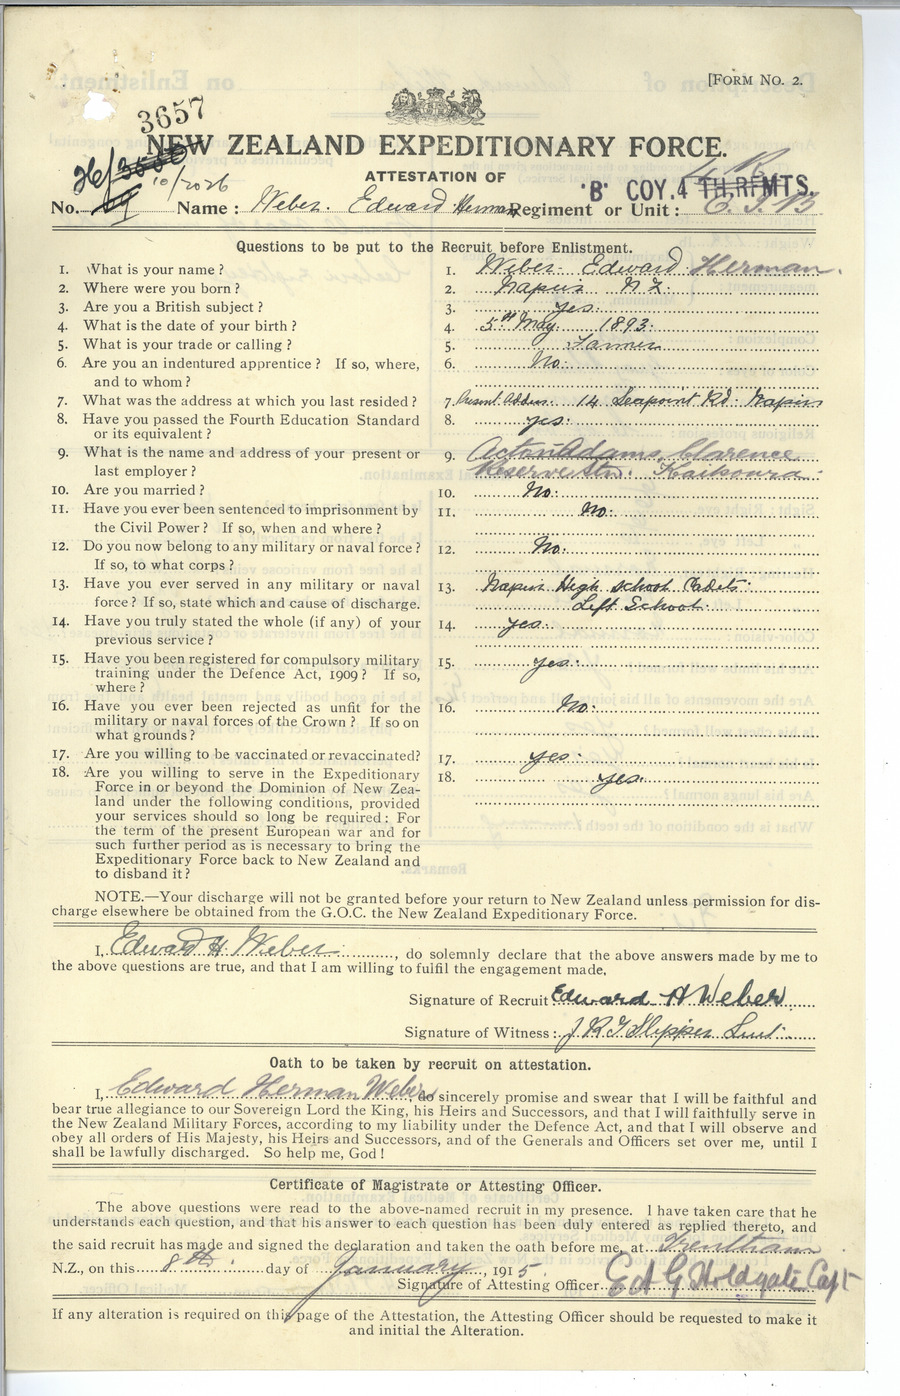 [FORM NO. 2.
3657
NEW ZEALAND EXPEDITIONARY FORCE.
26/3558
10/2026
ATTESTATION OF
'B' COY. 4 TH. RFMTS.
No. Name : Weber Edward Herman Regiment or Unit :
Questions to be put to the Recruit before Enlistment.
1. What is your name ? 1. Weber Edward Herman.
2. Where were you born ? 2. Napier N Z.
3. Are you a British subject ? 3. yes.
4. What is the date of your birth ? 4. 5th May 1893.
5. What is your trade or calling ? 5. Farmer
6. Are you an indentured apprentice ? If so, where, 6. No.
and to whom ?
7. What was the address at which you last resided ? 7. Present Address 14 Seapoint Rd. Napier
8. Have you passed the Fourth Education Standard 8. yes.
or its equivalent ?
9. What is the name and address of your present or 9. Acton Adams, Clarence
last employer ? Reserve Stn. Kaikoura.
10. Are you married ? 10. No.
11. Have you ever been sentenced to imprisonment by 11. No.
the Civil Power ? If so, when and where ?
12. Do you now belong to any military or naval force ? 12. No.
If so, to what corps ?
13. Have you ever served in any military or naval 13. Napier High School Cadets.
force ? If so, state which and cause of discharge. Left School.
14. Have you truly stated the whole (if any) of your 14. yes.
previous service ?
15. Have you been registered for compulsory military 15. yes.
training under the Defence Act, 1909 ? If so,
where ?
16. Have you ever been rejected as unfit for the 16. No.
military or naval forces of the Crown ? If so on
what grounds ?
17. Are you willing to be vaccinated or revaccinated? 17. yes.
18. Are you willing to serve in the Expeditionary 18. yes.
Force in or beyond the Dominion of New Zea-
land under the following conditions, provided
your services should so long be required : For
the term of the present European war and for
such further period as is necessary to bring the
Expeditionary Force back to New Zealand and
to disband it ?
NOTE.—Your discharge will not be granted before your return to New Zealand unless permission for dis-
charge elsewhere be obtained from the G.O.C. the New Zealand Expeditionary Force.
I, Edward H Weber, do solemnly declare that the above answers made by me to
the above questions are true, and that I am willing to fulfil the engagement made,
Signature of Recruit Edward H Weber
Signature of Witness : Lieut.
Oath to be taken by recruit on attestation.
I, Edward Herman Weber do sincerely promise and swear that I will be faithful and
bear true allegiance to our Sovereign Lord the King, his Heirs and Successors, and that I will faithfully serve in
the New Zealand Military Forces, according to my liability under the Defence Act, and that I will observe and
obey all orders of His Majesty, his Heirs and Successors, and of the Generals and Officers set over me, until I
shall be lawfully discharged. So help me, God !
Certificate of Magistrate or Attesting Officer.
The above questions were read to the above-named recruit in my presence. I have taken care that he
understands each question, and that his answer to each question has been duly entered as replied thereto, and
the said recruit has made and signed the declaration and taken the oath before me, at Trentham
N.Z., on this 8th day of January, 1915.
Signature of Attesting Officer E A G Holdgate Capt
If any alteration is required on this page of the Attestation, the Attesting Officer should be requested to make it
and initial the Alteration.